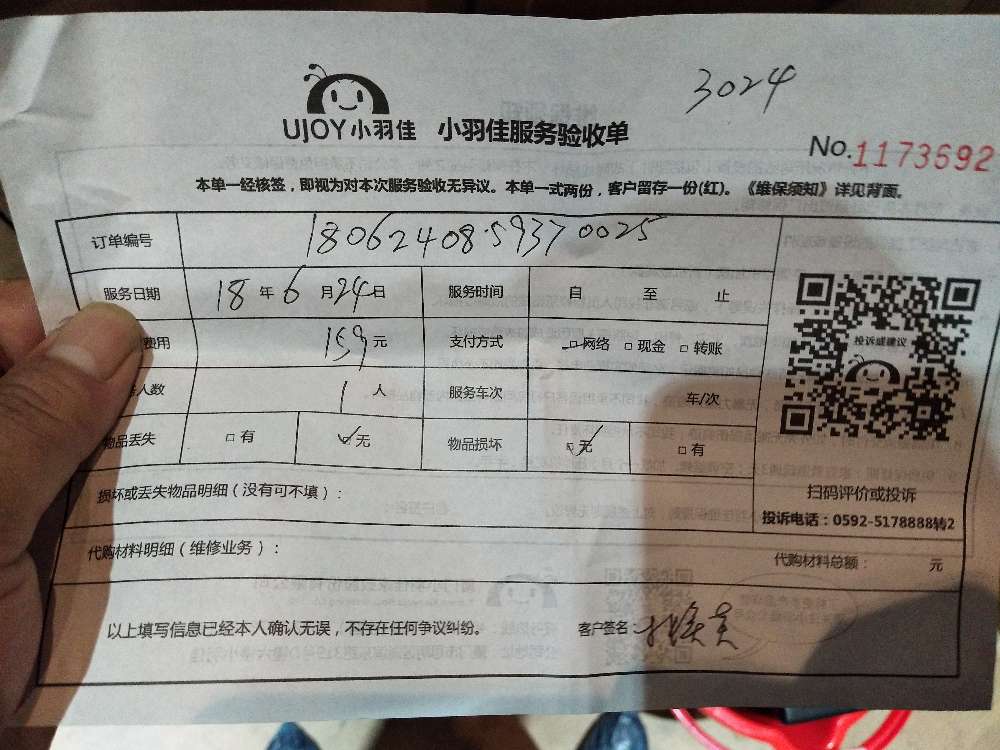 3024
UJOY小羽佳 小羽佳服务验收单
No.1173692
本单一经核签，即视为对本次服务验收无异议。本单一式两份，客户留存一份(红)。《维保须知》详见背面。
订单编号 180624085937 0025
服务日期 18 年 6 月 24 日 服务时间 自 至 止
费用 159 元 支付方式 □网络 □现金 □转账
人数 1 人 服务车次 车/次
物品丢失 □有 ☑无 物品损坏 ☑无 □有
投诉或建议
损坏或丢失物品明细（没有可不填）：
扫码评价或投诉
投诉电话：0592-5178888转2
代购材料明细（维修业务）：
代购材料总额： 元
以上填写信息已经本人确认无误，不存在任何争议纠纷。 客户签名：